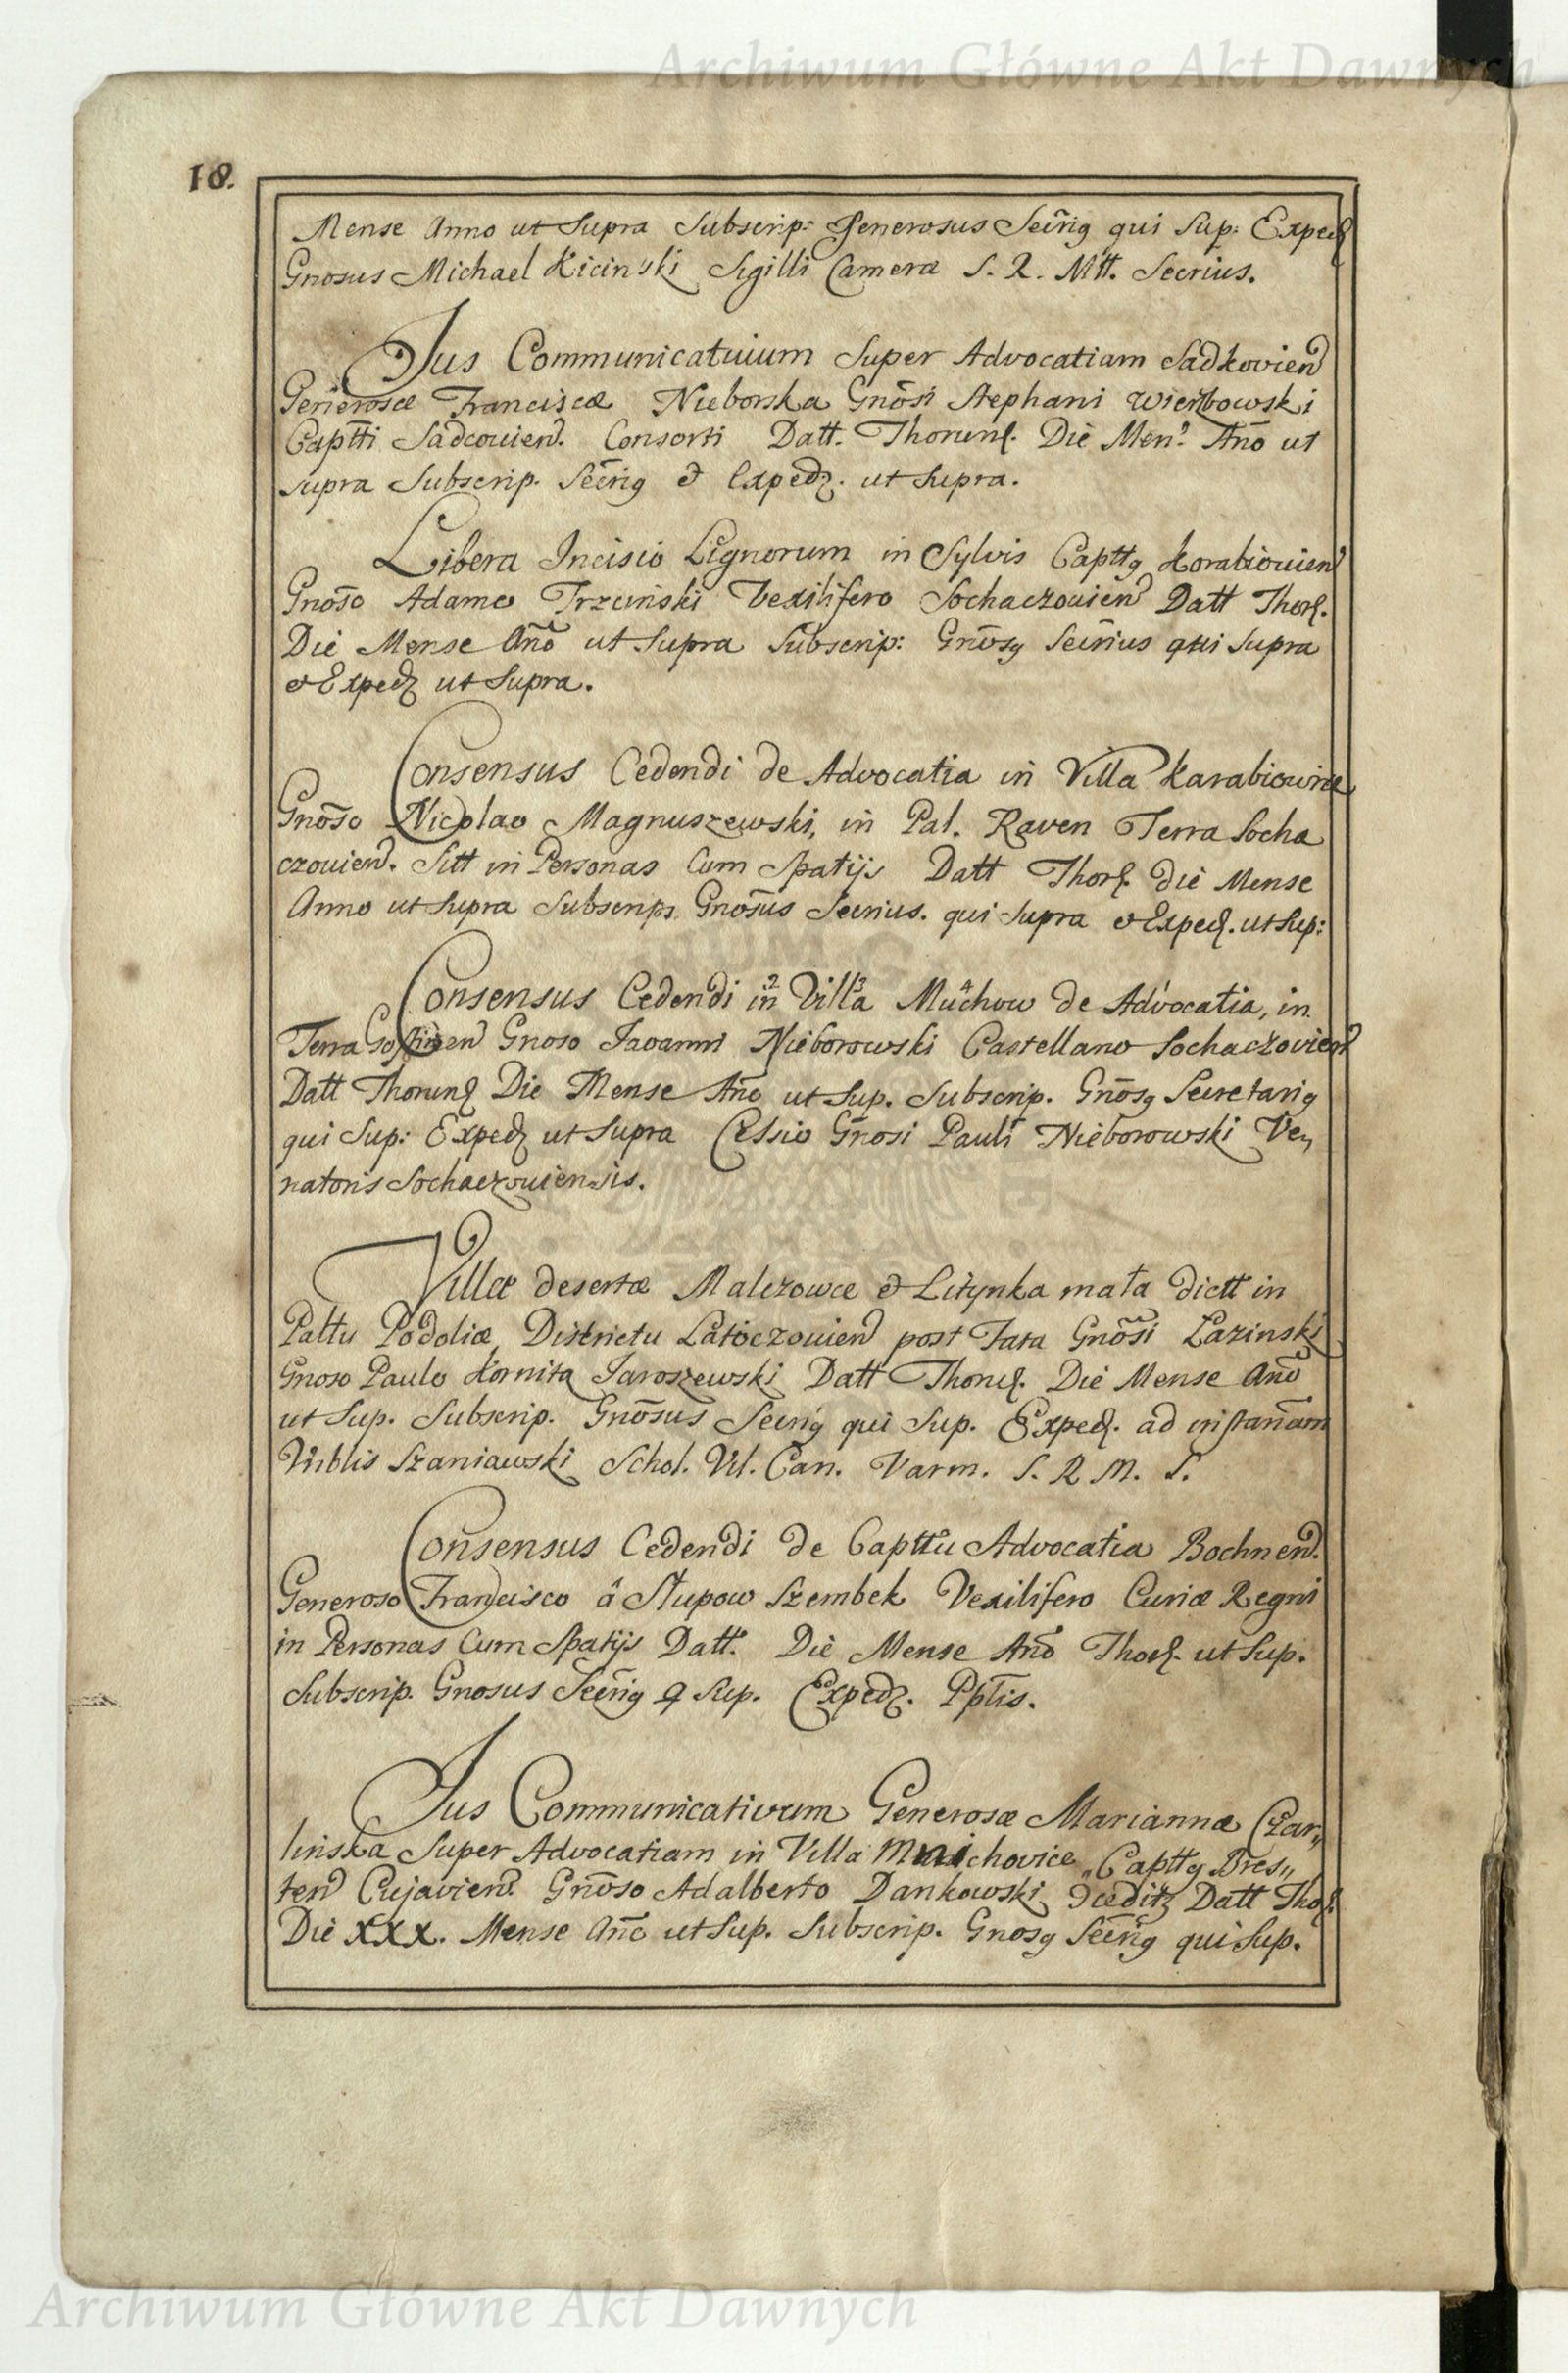 Archiwum Główne Akt Dawnych
18.
Mense Anno ut Supra Subscrip: Generosus Secrig qui Sup: Exped
Gnosus Michael Kicinski Sigilli Cameræ S. R. Mtt. Secrius.
Jus Communicatiuum Super Advocatiam Sadkovien
Generosæ Franciscæ Nieborska Gnōsi Stephani Wierzbowski
Captti Sadcouien. Consorti Datt. Thorun. Die Men: Año ut
supra Subscrip. Secrig & Exped. ut Supra.
Libera Incisio Lignorum in Sylvis Capttg Korabiouien
Gnōso Adamo Trzcinski Vexilifero Sochaczouien Datt Thor.
Die Mense Año ut Supra Subscrip: Gnōsg Secrius qui Supra
& Exped ut Supra.
Consensus Cedendi de Advocatia in Villa Karabiowice
Gnōso Nicolao Magnuszewski, in Pal. Raven Terra Socha
czouien. Sitt in Personas Cum Spatijs Datt Thor. die Mense
Anno ut Supra Subscrips. Gnōsus Secrius. qui Supra & Exped. ut Sup:
Consensus Cedendi in Villa Muchow de Advocatia, in
Terra Gostinen Gnoso Jaoanni Nieborowski Castellano Sochaczovien
Datt Thorun Die Mense Año ut Sup. Subscrip. Gnōsg Secretarig
qui Sup: Exped ut Supra Cessio Gnōsi Pauli Nieborowski Ve„
natoris Sochaczouiensis.
Villæ desertæ Malczowce & Litynka mała dictt in
Paltu Podoliæ Districtu Laticzouien post Fata Gnōsi Lazinski
Gnoso Paulo Kornita Jaroszewski Datt Thorun. Die Mense Año
ut Sup. Subscrip. Gnōsus Secrig qui Sup. Exped. ad instanam
Vnblis Szaniawski Schol. Vil. Can. Varm. S. R M. S.
Consensus Cedendi de Capttu Advocatia Bochnen.
Generoso Francisco â Słupow Szembek Vexilifero Curiæ Regni
in Personas Cum Spatijs Datt. Die Mense Año Thor. ut Sup.
Subscrip. Gnosus Secrig q Sup. Exped. Pptis.
Jus Communicativum Generosæ Mariannæ Czar„
linska Super Advocatiam in Villa Mnichovice „Capttg Bres„
ten Cujavien. Gnōso Adalberto Dankowski Datt Tho.
Die XXX. Mense Año ut Sup. Subscrip. Gnosg Secrig qui Sup.
Archiwum Główne Akt Dawnych